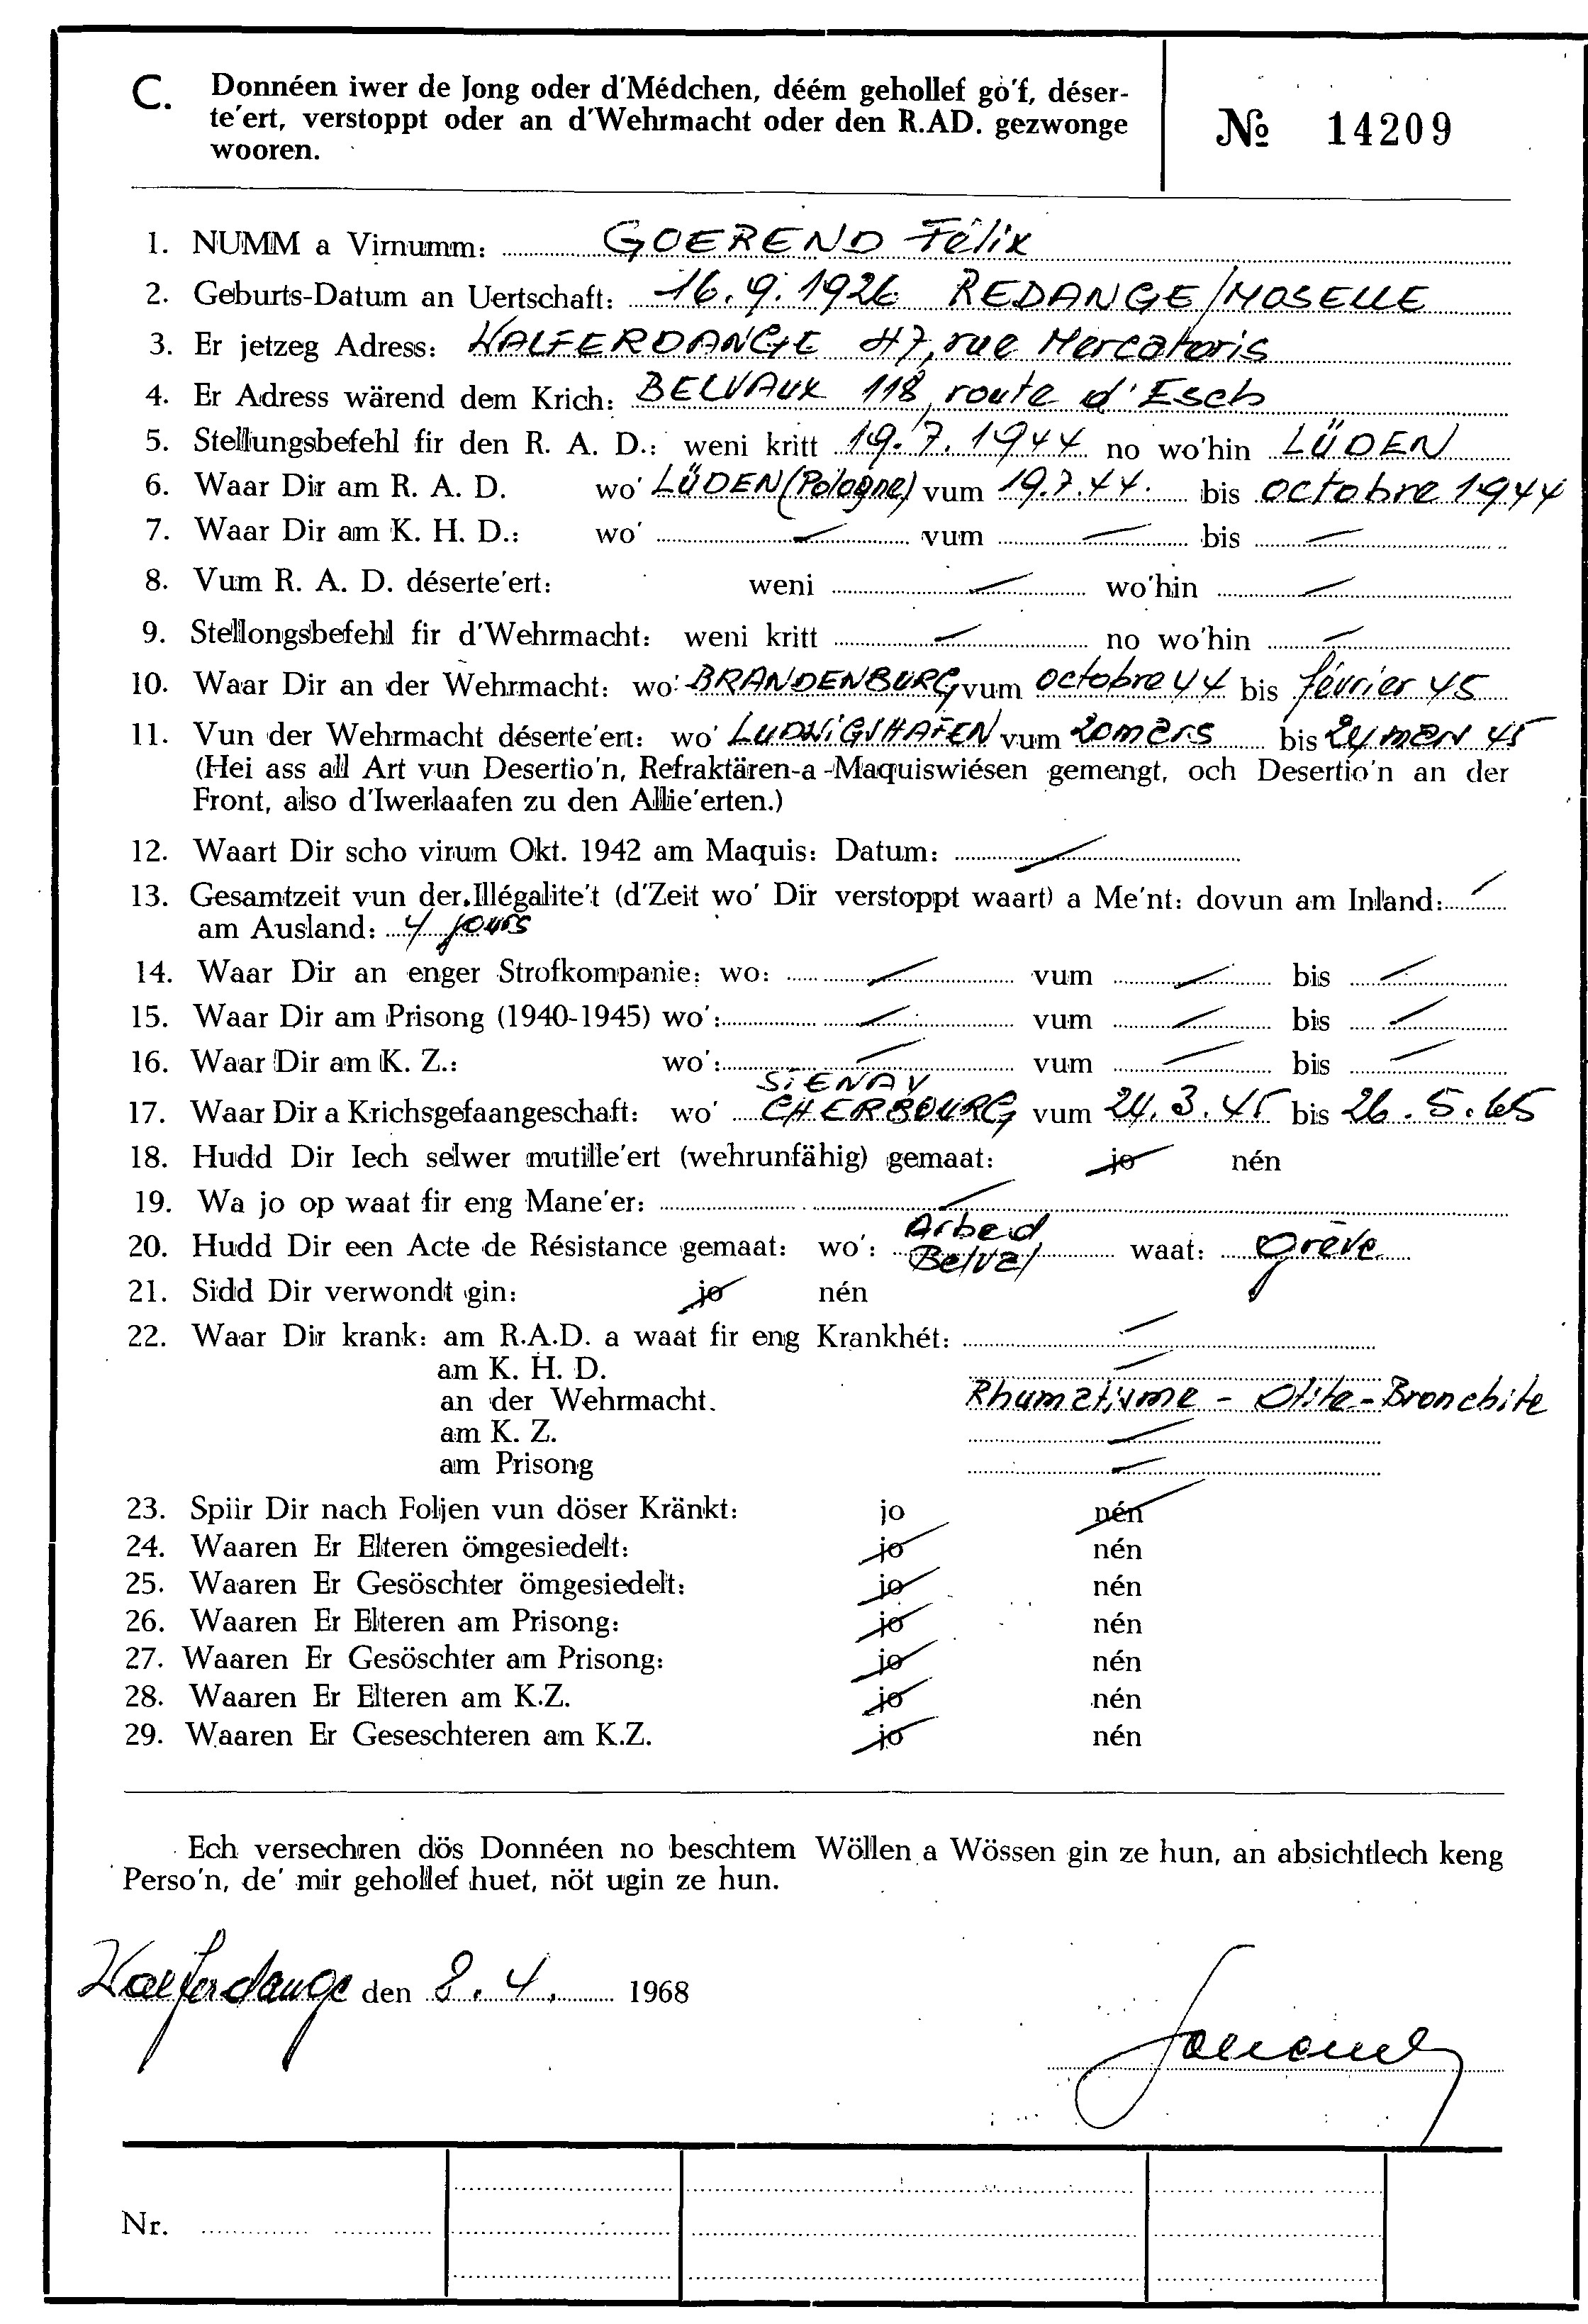 C. Donnéen iwer de Jong oder d'Médchen, déém gehollef go'f, déser-
te'ert, verstoppt oder an d'Wehrmacht oder den R.AD. gezwonge
wooren.
№ 14209
1. NUMM a Virnumm: GOEREND Félix
2. Geburts-Datum an Uertschaft: 16.9.1926 REDANGE/MOSELLE
3. Er jetzeg Adress: WALFERDANGE 47, rue Mercatoris
4. Er Adress wärend dem Krich: BELVAUX 118, route d'Esch
5. Stellungsbefehl fir den R. A. D.: weni kritt 19.7.1944 no wo'hin LÜDEN
6. Waar Dir am R. A. D. wo' LÜDEN (Pologne) vum 19.7.44. bis octobre 1944
7. Waar Dir am K. H. D.: wo' — vum — bis —
8. Vum R. A. D. déserte'ert: weni — wo'hin —
9. Stellongsbefehl fir d'Wehrmacht: weni kritt — no wo'hin —
10. Waar Dir an der Wehrmacht: wo' BRANDENBURG vum octobre 44 bis février 45
11. Vun der Wehrmacht déserte'ert: wo' LUDWIGSHAFEN vum 20 mars bis 24 mars 45
(Hei ass all Art vun Desertio'n, Refraktären-a -Maquiswiésen gemengt, och Desertio'n an der
Front, also d'Iwerlaafen zu den Allie'erten.)
12. Waart Dir scho virum Okt. 1942 am Maquis: Datum: —
13. Gesamtzeit vun der Illégalite't (d'Zeit wo' Dir verstoppt waart) a Me'nt: dovun am Inland: —
am Ausland: 4 jours
14. Waar Dir an enger Strofkompanie: wo: — vum — bis —
15. Waar Dir am Prisong (1940-1945) wo': — vum — bis —
16. Waar Dir am K. Z.: wo': — vum — bis —
SiENAY
17. Waar Dir a Krichsgefaangeschaft: wo' CHERBOURG vum 24.3.45 bis 26.5.45
18. Hudd Dir Iech selwer mutille'ert (wehrunfähig) gemaat: jo nén
19. Wa jo op waat fir eng Mane'er: —
20. Hudd Dir een Acte de Résistance gemaat: wo': Arbed Belval waat: grève
21. Sidd Dir verwondt gin: jo nén
22. Waar Dir krank: am R.A.D. a waat fir eng Krankhét: —
am K. H. D. —
an der Wehrmacht. Rhumatisme - Otite - Bronchite
am K. Z. —
am Prisong —
23. Spiir Dir nach Foljen vun döser Kränkt: jo nén
24. Waaren Er Elteren ömgesiedelt: jo nén
25. Waaren Er Gesöschter ömgesiedelt: jo nén
26. Waaren Er Elteren am Prisong: jo nén
27. Waaren Er Gesöschter am Prisong: jo nén
28. Waaren Er Elteren am K.Z. jo nén
29. Waaren Er Geseschteren am K.Z. jo nén
Ech versechren dös Donnéen no beschtem Wöllen a Wössen gin ze hun, an absichtlech keng
Perso'n, de' mir gehollef huet, nöt ugin ze hun.
Walferdange den 8.4. 1968
Nr.